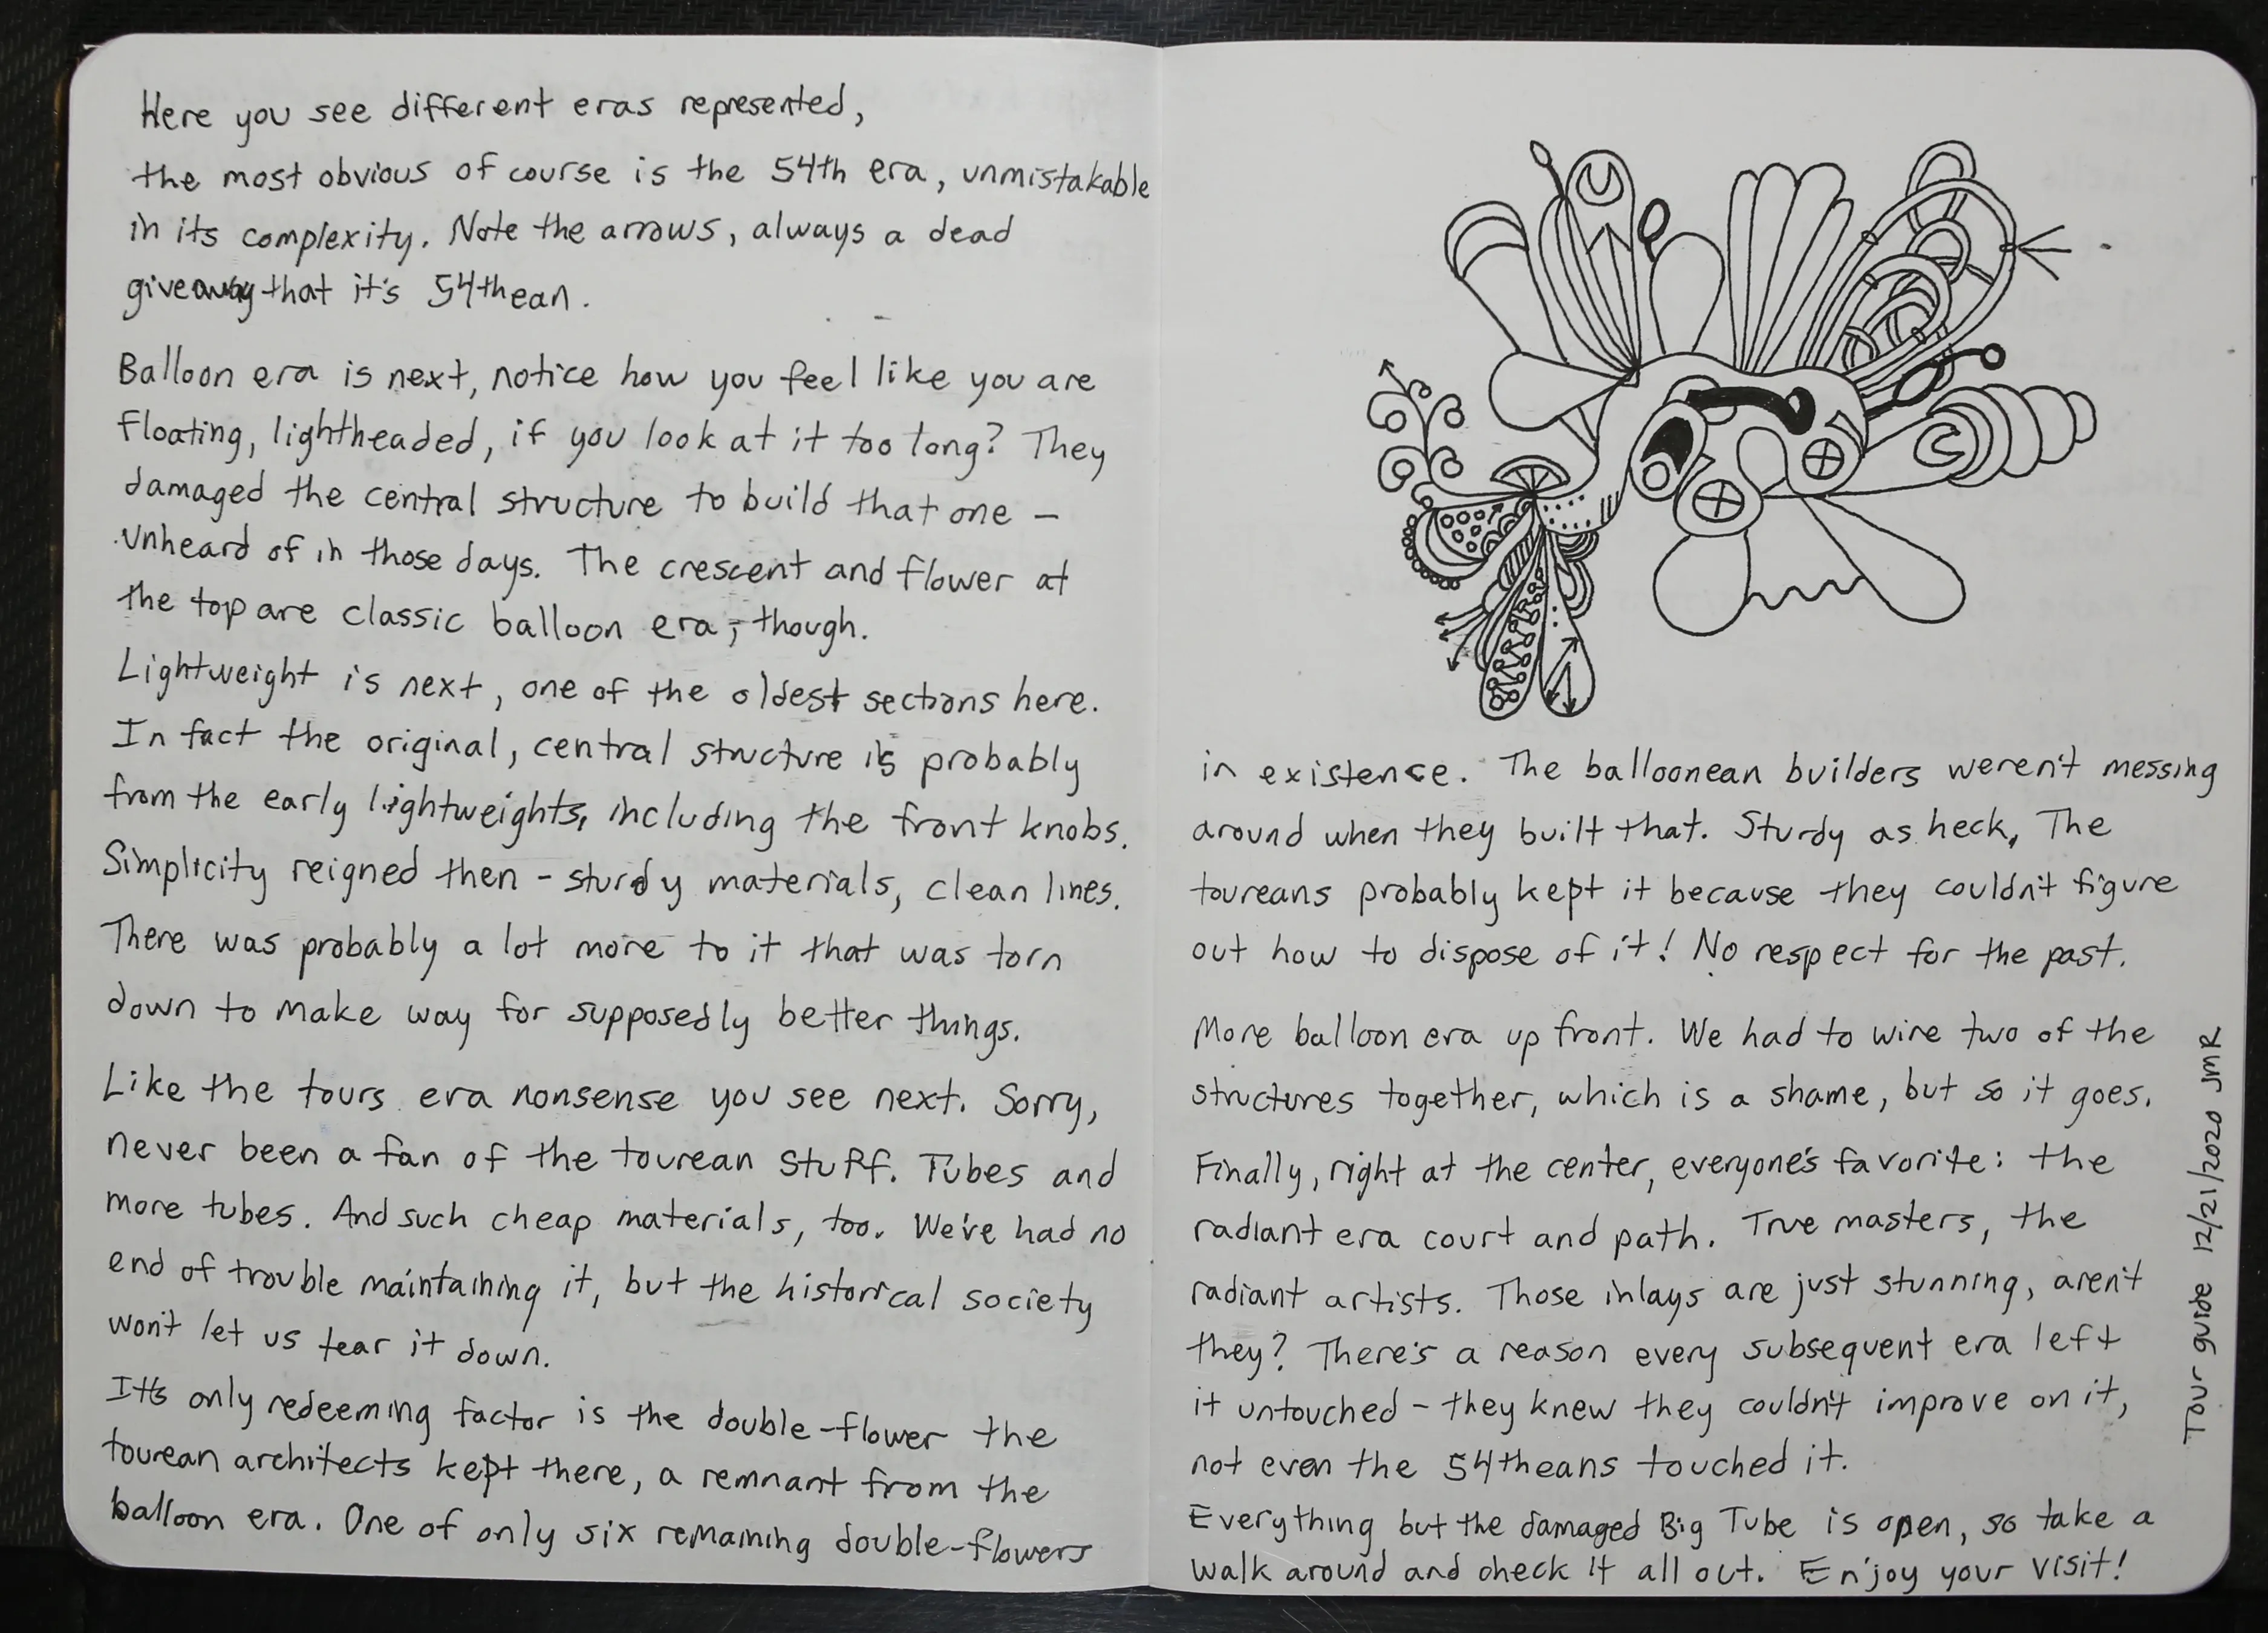 Here you see different eras represented,
the most obvious of course is the 54th era, unmistakable
in its complexity. Note the arrows, always a dead
giveaway that it's 54thean.
Balloon era is next, notice how you feel like you are
floating, lightheaded, if you look at it too long? They
damaged the central structure to build that one –
unheard of in those days. The crescent and flower at
the top are classic balloon era, though.
Lightweight is next, one of the oldest sections here.
In fact the original, central structure is probably
from the early lightweights, including the front knobs.
Simplicity reigned then – sturdy materials, clean lines.
There was probably a lot more to it that was torn
down to make way for supposedly better things.
Like the tours era nonsense you see next. Sorry,
never been a fan of the tourean stuff. Tubes and
more tubes. And such cheap materials, too. We've had no
end of trouble maintaining it, but the historical society
won't let us tear it down.
It's only redeeming factor is the double-flower the
tourean architects kept there, a remnant from the
balloon era. One of only six remaining double-flowers
in existence. The balloonean builders weren't messing
around when they built that. Sturdy as heck, The
toureans probably kept it because they couldn't figure
out how to dispose of it! No respect for the past.
More balloon era up front. We had to wire two of the
structures together, which is a shame, but so it goes.
Finally, right at the center, everyone's favorite: the
radiant era court and path. True masters, the
radiant artists. Those inlays are just stunning, aren't
they? There's a reason every subsequent era left
it untouched – they knew they couldn't improve on it,
not even the 54theans touched it.
Everything but the damaged Big Tube is open, so take a
walk around and check it all out. Enjoy your visit!
Tour guide 12/21/2020 JMR